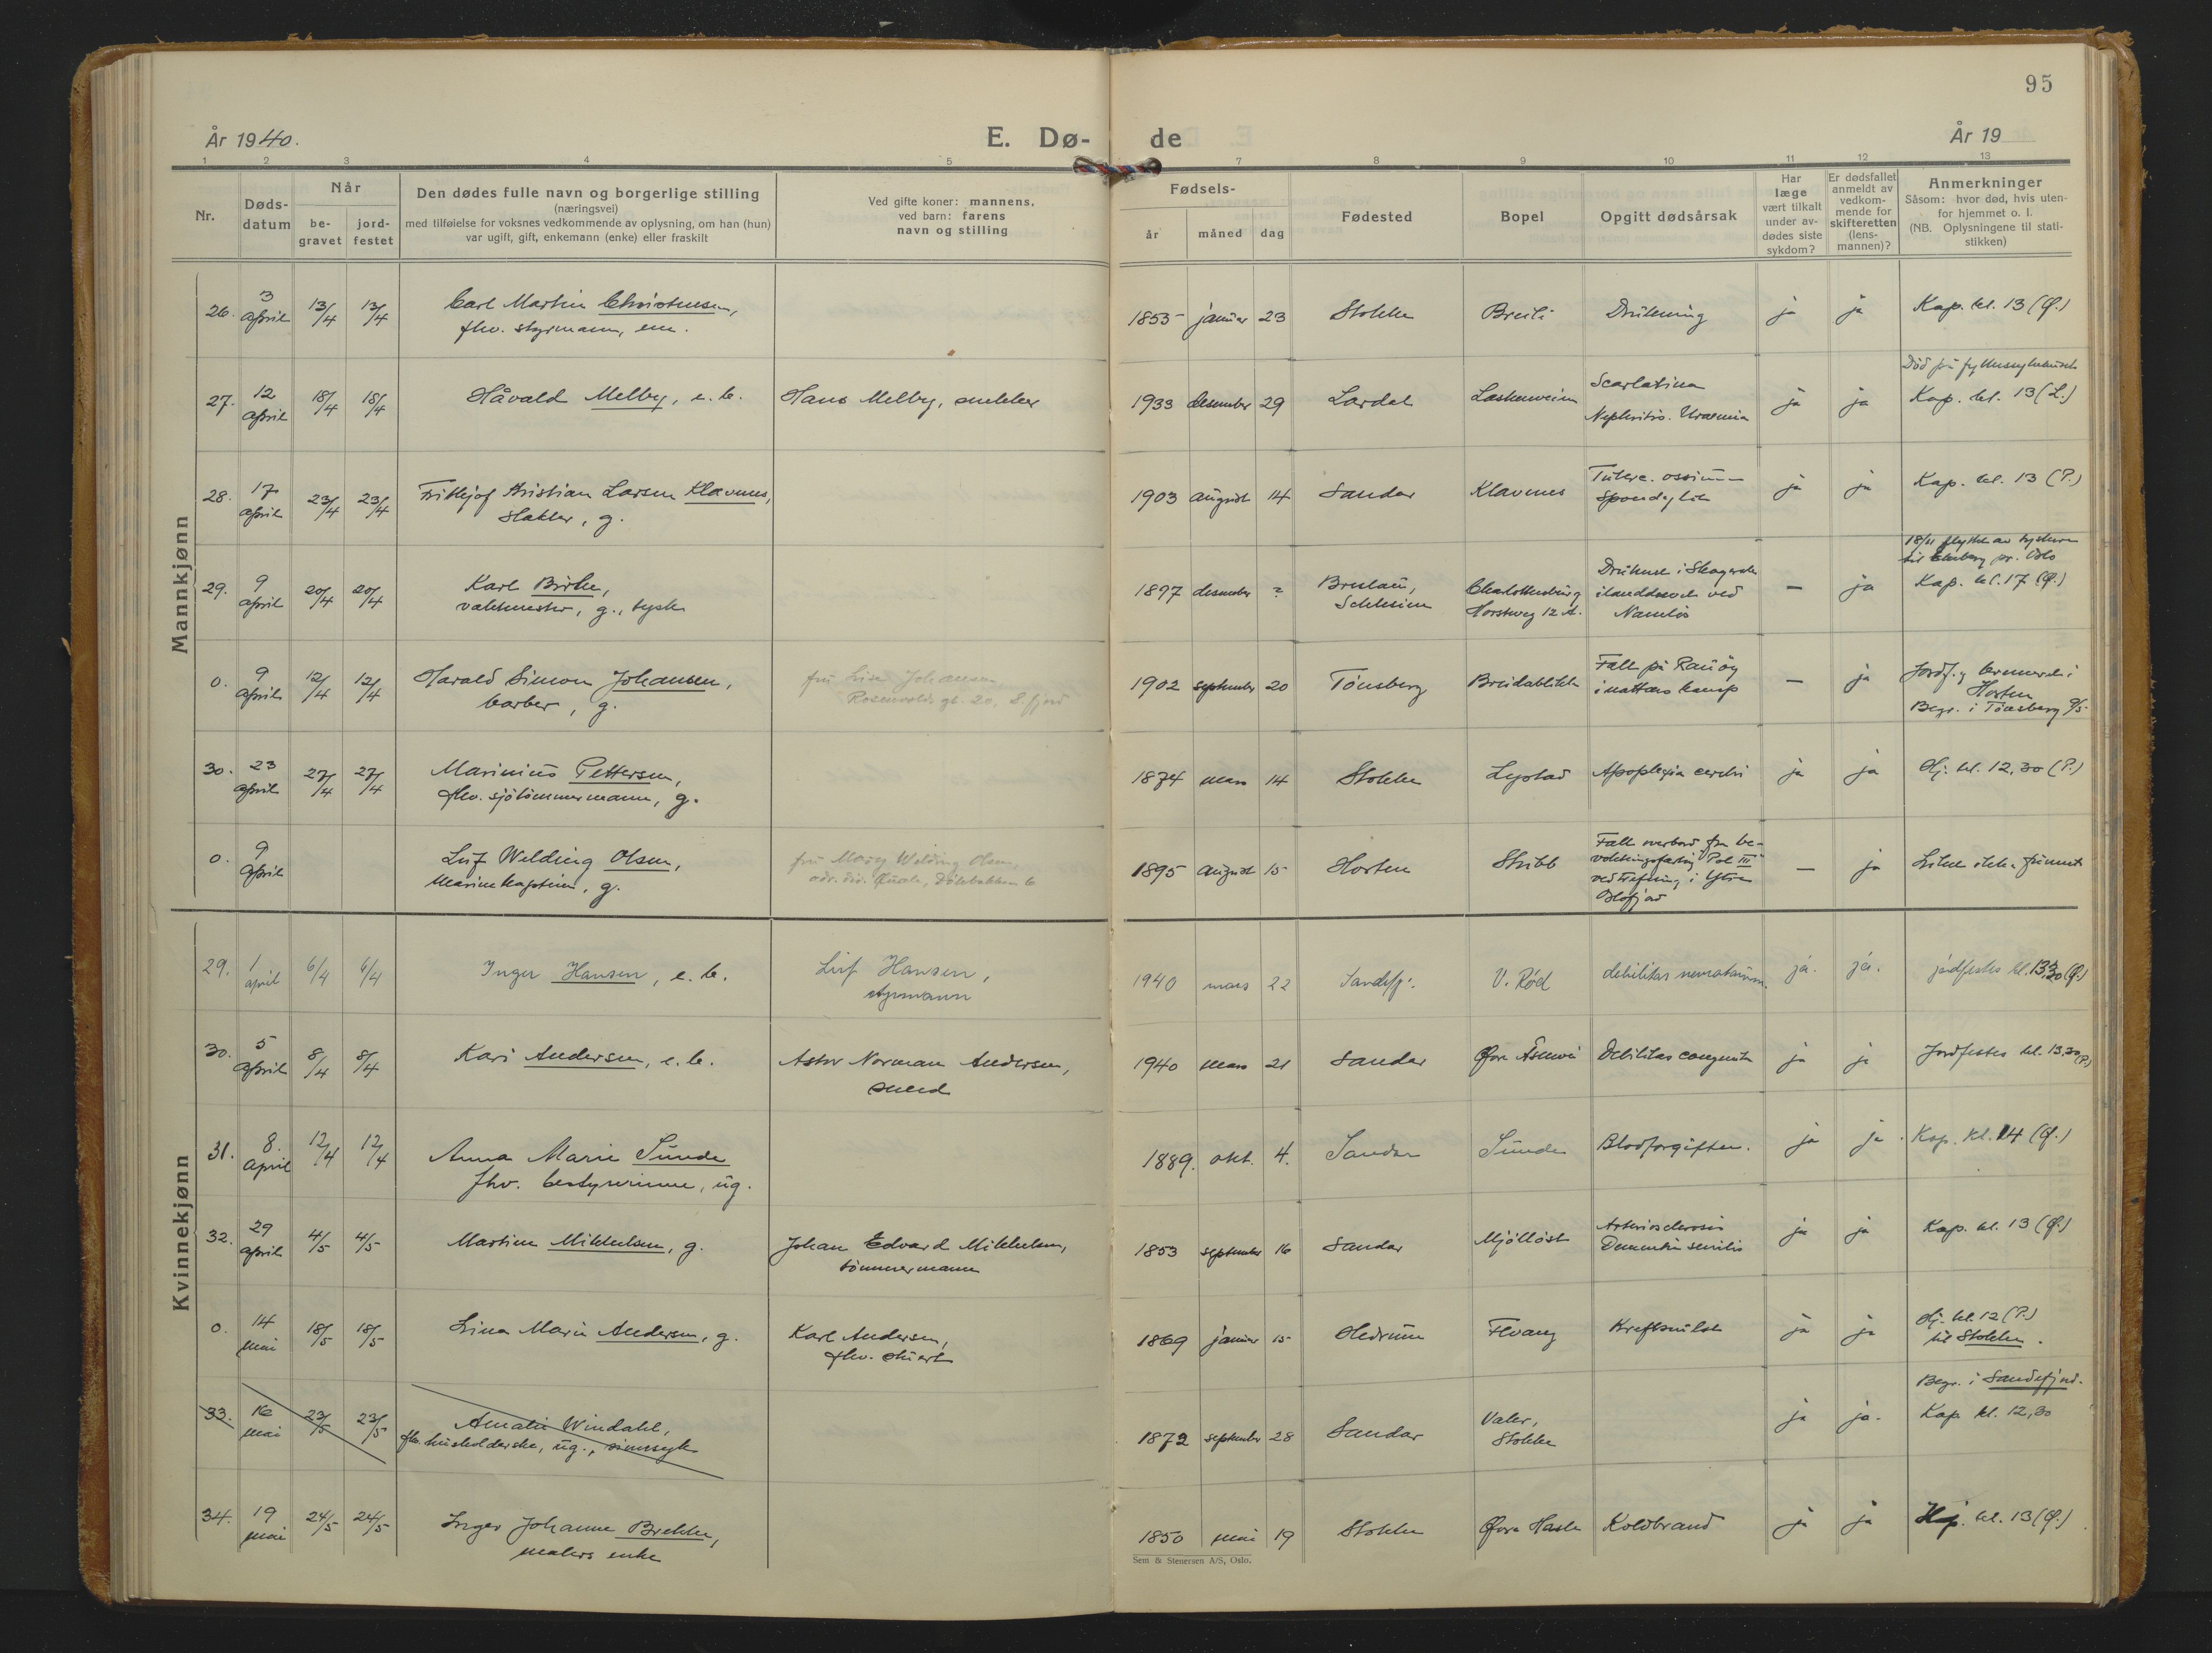 95
År 1940.
E. Dø-
de
År 19
1 2 3 4 5 7 8 9 10 11 12 13
Nr.
Døds-
datum
Når
be-
gravet
jord-
festet
Den dødes fulle navn og borgerlige stilling
(næringsvei)
med tilføielse for voksnes vedkommende av oplysning, om han (hun)
var ugift, gift, enkemann (enke) eller fraskilt
Ved gifte koner: mannens,
ved barn: farens
navn og stilling
Fødsels-
år
måned
dag
Fødested
Bopel
Opgitt dødsårsak
Har
læge
vært tilkalt
under av-
dødes siste
sykdom?
Er dødsfallet
anmeldt av
vedkom-
mende for
skifteretten
(lens-
mannen)?
Anmerkninger
Såsom: hvor død, hvis uten-
for hjemmet o. l.
(NB. Oplysningene til stati-
stikken)
Mannkjønn
26. 3 april 13/4 13/4 Carl Martin Christensen,
fhv. styrmann, em.
1853 januar 23 Stokke Breili Drukning ja ja Kap. kl. 13 (Q.)
27. 12 april 18/4 18/4 Håvald Melby, e. b. Hans Melby, snekker
1933 desember 29 Lardal
Scarlatina
Nephritis. Uraemia ja ja
Død på fylkessykehuset
Kap. kl. 13 (L.)
28. 17 april 23/4 23/4 Frithjof Kristian Larsen Klavenes,
slakter, g.
1903 august 14 Sandar Klavenes
Tuberc. ossium
Spondylit ja ja Kap. kl. 13 (P.)
29. 9 april 20/4 20/4 Karl Birke,
vaktmester, g., tysk
1897 desember ? Breslau,
Schlesien
Charlottenburg
Horstweg 12 A.
Druknet i Skagerak
ilanddrevet ved
Namløs – ja
18/11 flyttet av tyskerne
til Ekeberg pr. Oslo
Kap. kl. 17 (Q.)
0. 9 april 12/4 12/4 Harald Simon Johansen,
barber, g.
fru Lise Johansen,
Rosenvolds gt. 20, S.fjord
1902 september 20 Tønsberg Breidablikk
Falt på Rauøy
i nattens kamp – ja
Jordf. og kremert i
Horten
Begr. i Tønsberg 9/5
30. 23 april 27/4 27/4 Marinius Pettersen,
fhv. sjøtømmermann, g.
1874 mars 14 Stokke Lystad Apoplexia cerebri ja ja Hj. kl. 12,30 (P.)
0. 9 april Leif Welding Olsen,
Marinekaptein, g.
fru Mary Welding Olsen,
1895 august 15 Horten Skibb
Falt overbord fra be-
voktningsfartøy "Pol III"
ved trefning i Ytre
Oslofjord – ja Liket ikke funnet
Kvinnekjønn
29. 1 april 6/4 6/4 Inger Hansen, e. b. Leif Hansen,
styrmann
1940 mars 22 Sandefj. V. Rød debilitas neonatorum. ja. ja. jordfestes kl. 13.30 (Q.)
30. 5 april 8/4 8/4 Kari Andersen, e. b. Astor Norman Andersen,
smed
1940 mars 21 Sandar Øvre Åsenvei Debilitas congenita ja ja Jordfestes kl. 13.30 (P.)
31. 8. april 12/4 12/4 Anna Marie Sunde
fhv. bestyrerinne, ug.
1889. okt. 4. Sandar Sunde Blodforgiften. ja ja. Kap. kl. 14 (Q.)
32. 29 april 4/5 4/5 Martine Mikkelsen, g. Johan Edvard Mikkelsen,
tömmermann
1853 september 16 Sandar Mjölløst
Arteriosclerosis
Dementia senilis ja ja Kap. kl. 13 (Q.)
0. 14 mai 18/5 18/5 Lina Marie Andersen, g. Karl Andersen,
fhv. stuert
1869 januar 15 Hedrum Hvang Kreftsvulst ja ja
Hj. kl. 12 (P.)
til Stokke.
33. 16 mai 23/5 23/5 Amalie Windahl,
fhv. husholderske, ug., sinnssyk
1872 september 28 Sandar Valer,
Stokke ja ja.
Begr. i Sandefjord.
Kap. kl. 12,30
34. 19 mai 24/5 24/5 Inger Johanne Brekke,
malers enke
1850 mai 19 Stokke Øvre Hasle Koldbrand ja ja Hj. kl. 13 (Q.)
Sem & Stenersen A/S, Oslo.